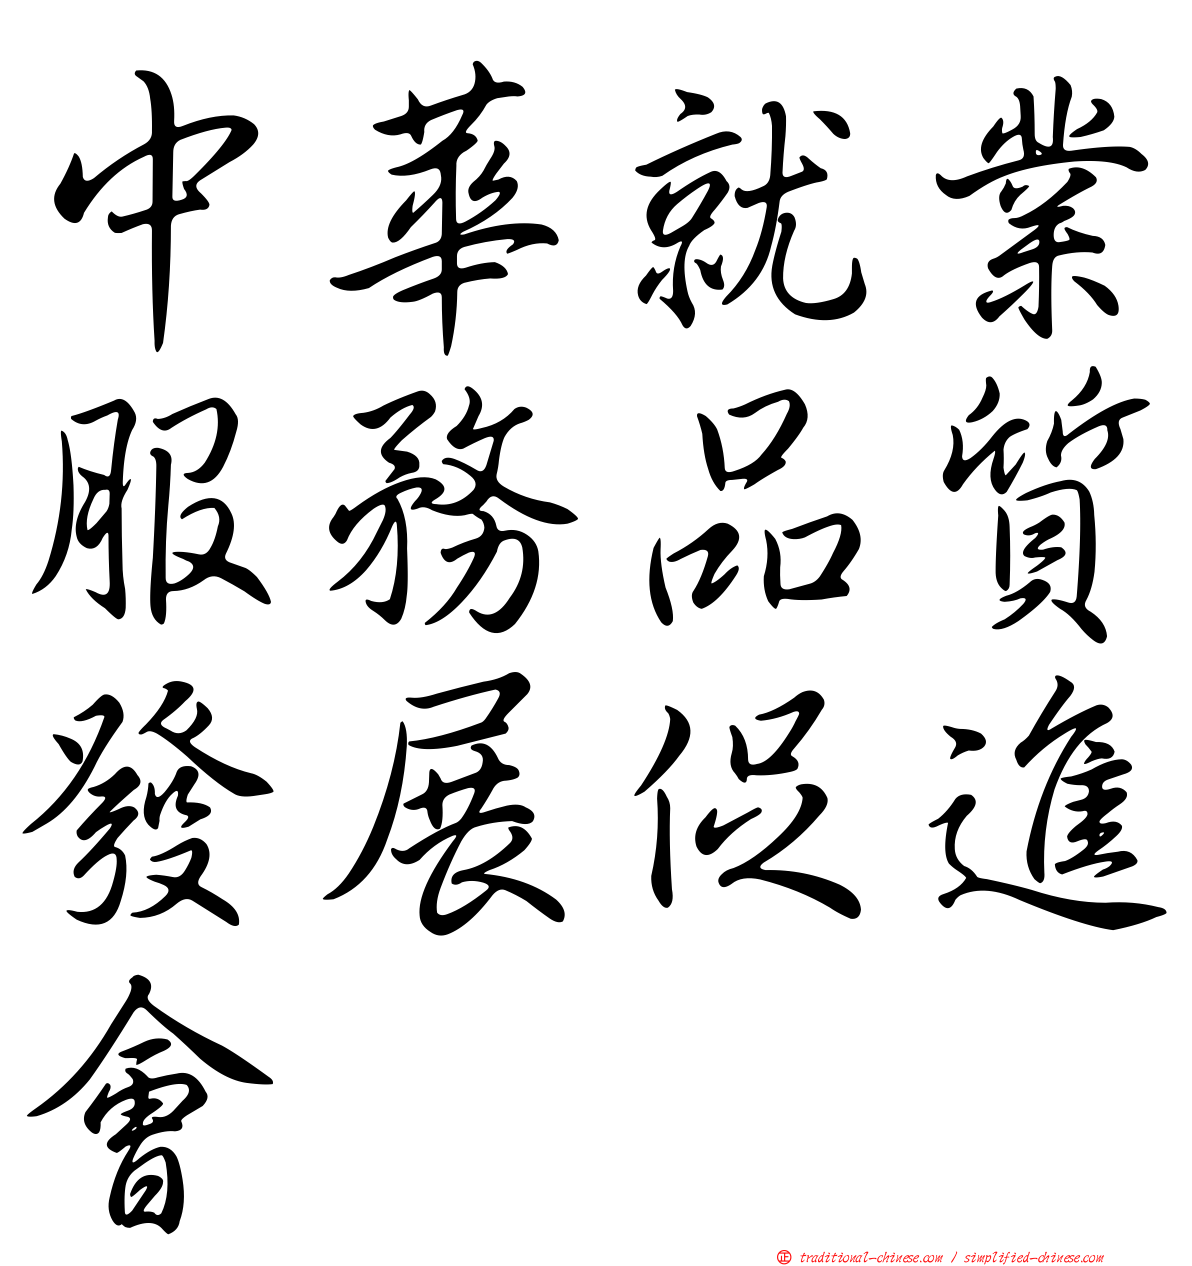 中華就業
服務品質
發展促進
會
正 traditional-chinese.com / simplified-chinese.com